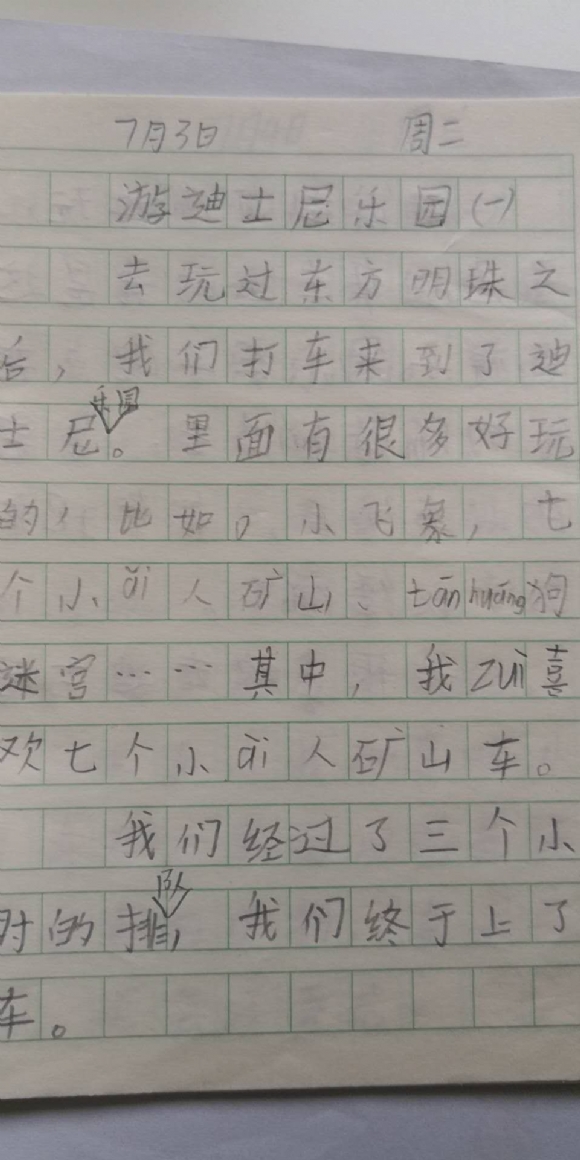 7月3日 周二
游迪士尼乐园(一)
去玩过东方明珠之
后，我们打车来到了迪
士尼乐园。里面有很多好玩
的，比如，小飞象，七
个小ǎi人矿山、tānhuáng狗
迷宫……其中，我zuì喜
欢七个小ǎi人矿山车。
我们经过了三个小
时的排队，我们终于上了
车。